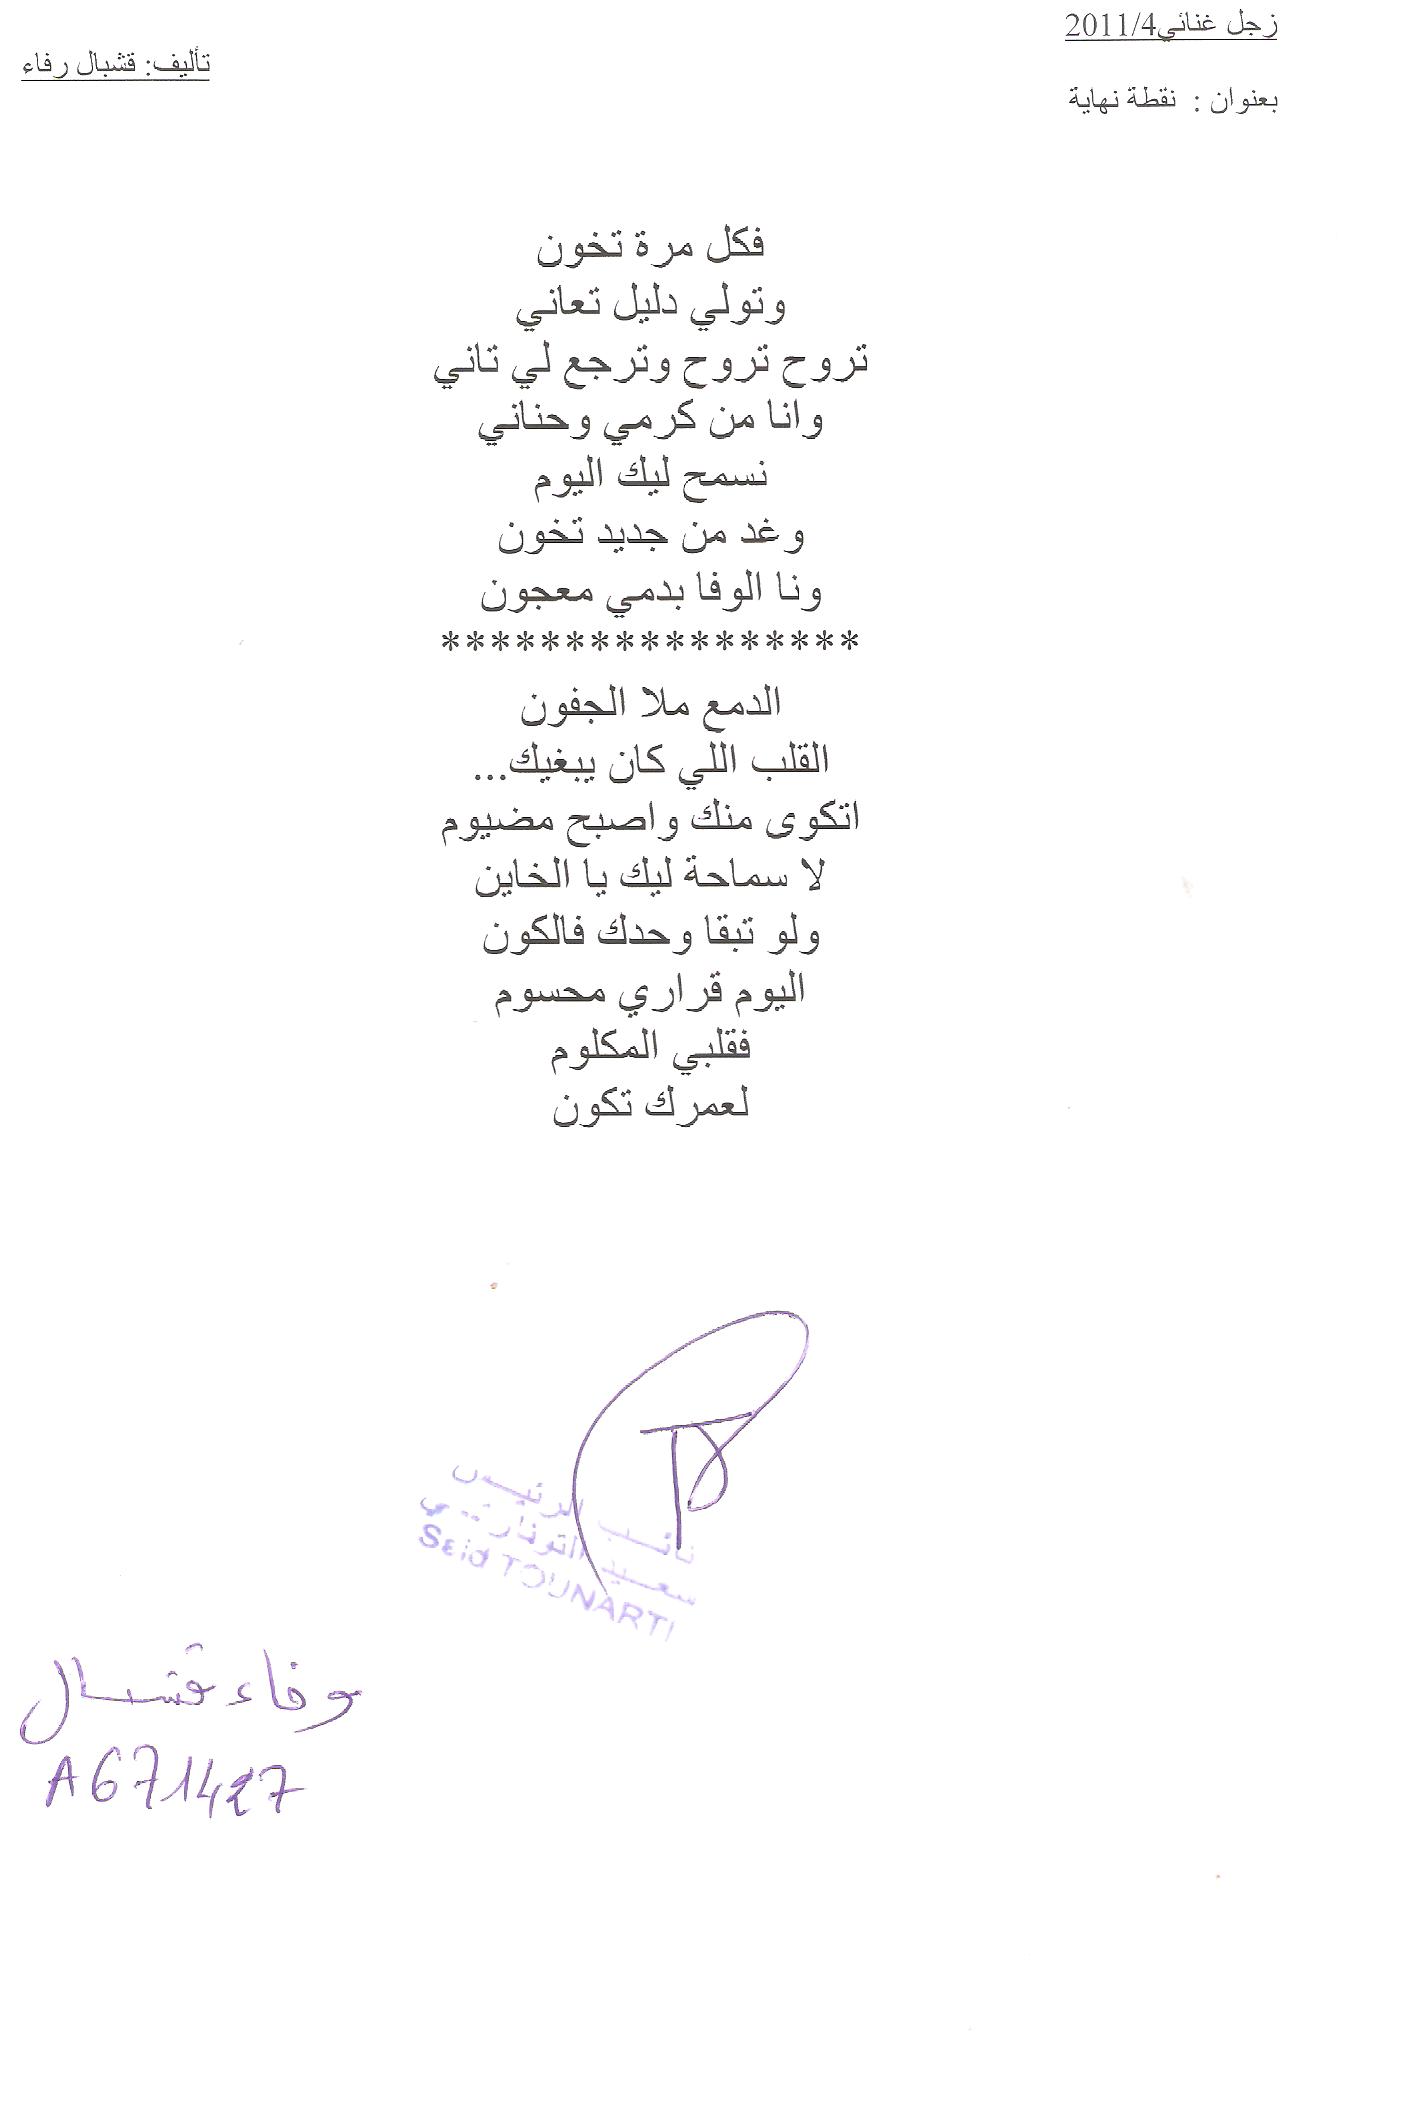 زجل غنائي2011/4
تأليف: قشبال رفاء
بعنوان : نقطة نهاية
فكل مرة تخون
وتولي دليل تعاني
تروح تروح وترجع لي تاني
وانا من كرمي وحناني
نسمح ليك اليوم
وغد من جديد تخون
ونا الوفا بدمي معجون
*****************
الدمع ملا الجفون
القلب اللي كان يبغيك...
اتكوى منك واصبح مضيوم
لا سماحة ليك يا الخاين
ولو تبقا وحدك فالكون
اليوم قراري محسوم
فقلبي المكلوم
لعمرك تكون
نائب الرئيس
سعيد التونارتي
Seid TOUNARTI
وفاء قشبال
A671427